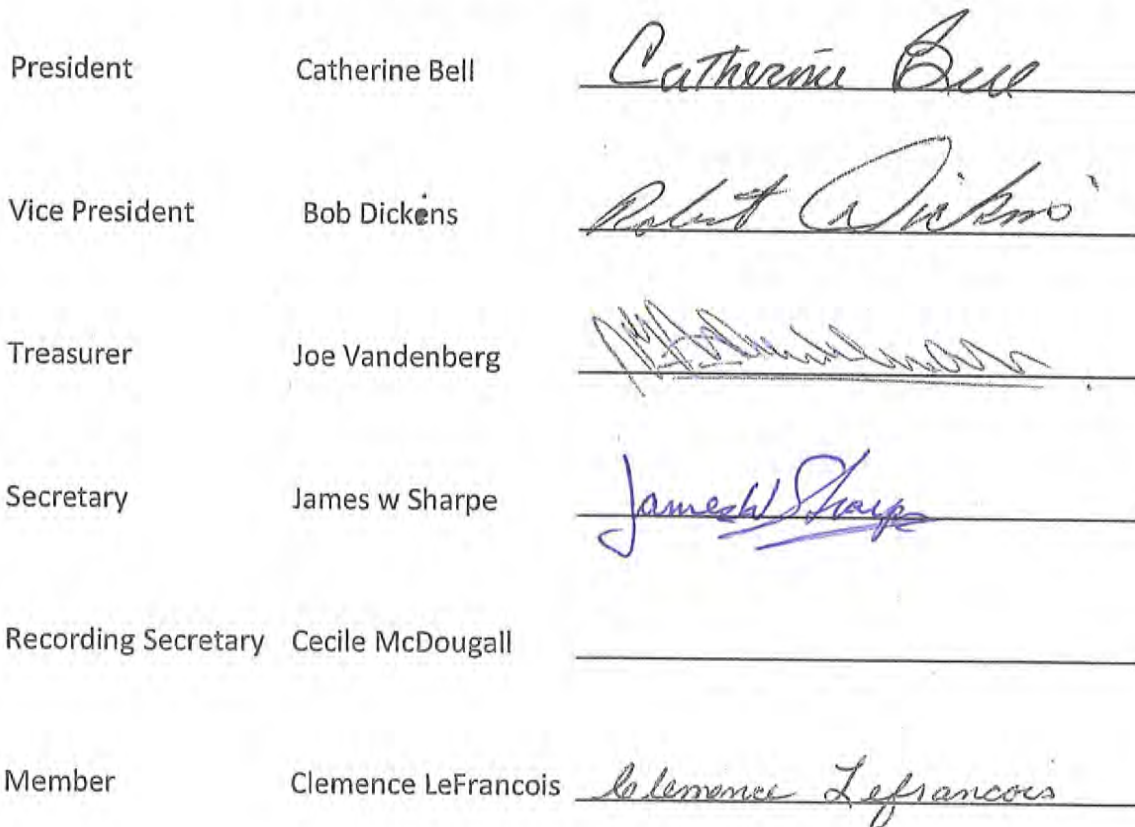 President Catherine Bell Catherine Bell
Vice President Bob Dickens Robert Dickens
Treasurer Joe Vandenberg
Secretary James w Sharpe James W Sharpe
Recording Secretary Cecile McDougall
Member Clemence LeFrancois Clemence Lefrancois